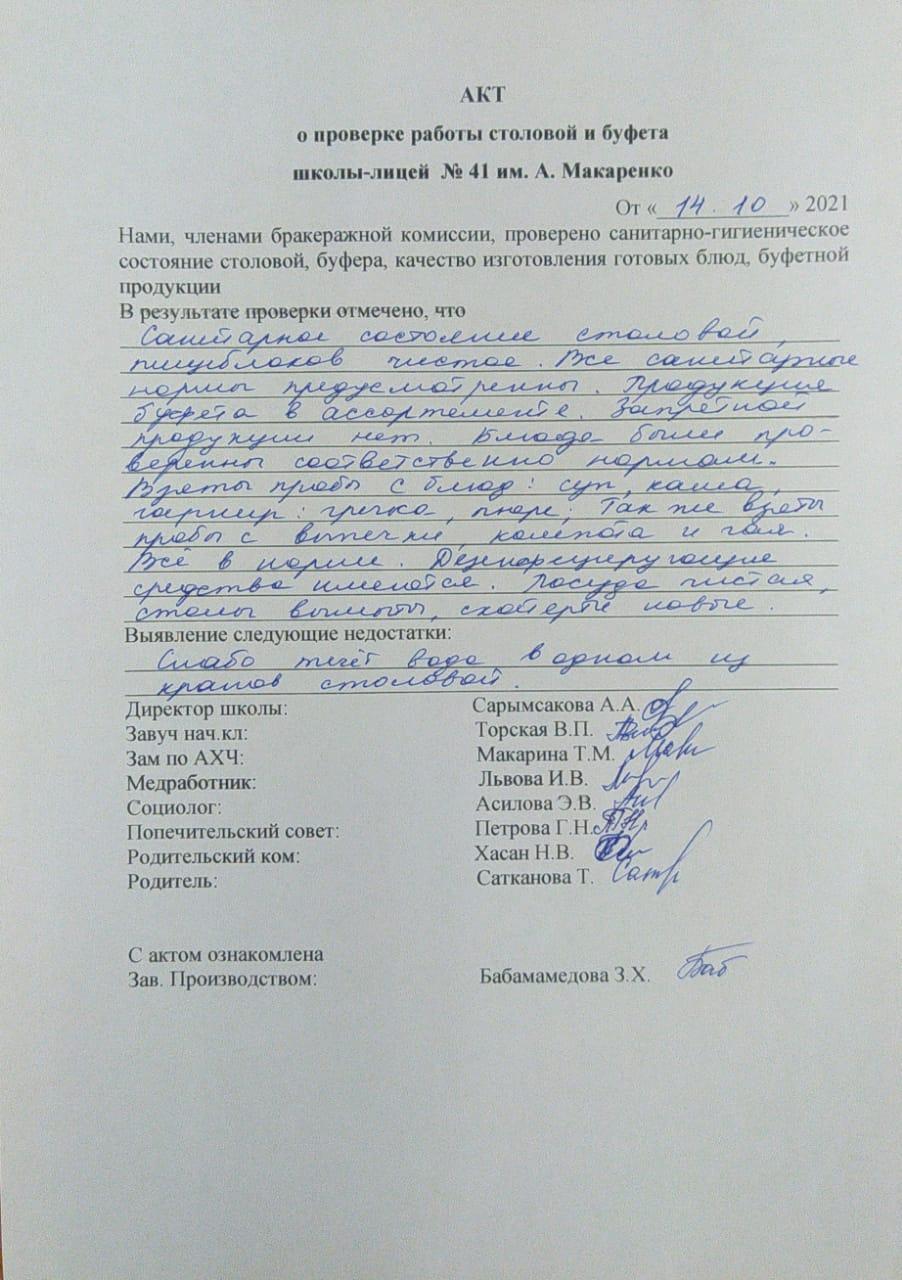 АКТ
о проверке работы столовой и буфета
школы-лицей № 41 им. А. Макаренко
От «14. 10» 2021
Нами, членами бракеражной комиссии, проверено санитарно-гигиеническое
состояние столовой, буфера, качество изготовления готовых блюд, буфетной
продукции
В результате проверки отмечено, что
Санитарное состояние столовой,
пищеблоков чистое. Все санитарные
нормы предусмотренны. Продукция
буфета в ассортементе. Запретной
продукции нет. Блюда были про-
веренны соответственно нормам.
Взяты пробы с блюд: суп, каша,
гарнир: гречка, пюре; Так же взяты
пробы с выпечки, компота и чая.
Всё в норме. Дезинфицирующие
средства имеются. Посуда чистая,
столы вымыты, скатерти новые.
Выявление следующие недостатки:
Слабо течёт вода в одном из
кранов столовой.
Директор школы: Сарымсакова А.А.
Завуч нач.кл: Торская В.П.
Зам по АХЧ: Макарина Т.М.
Медработник: Львова И.В.
Социолог: Асилова Э.В.
Попечительский совет: Петрова Г.Н.
Родительский ком: Хасан Н.В.
Родитель: Сатканова Т.
С актом ознакомлена
Зав. Производством: Бабамамедова З.Х.